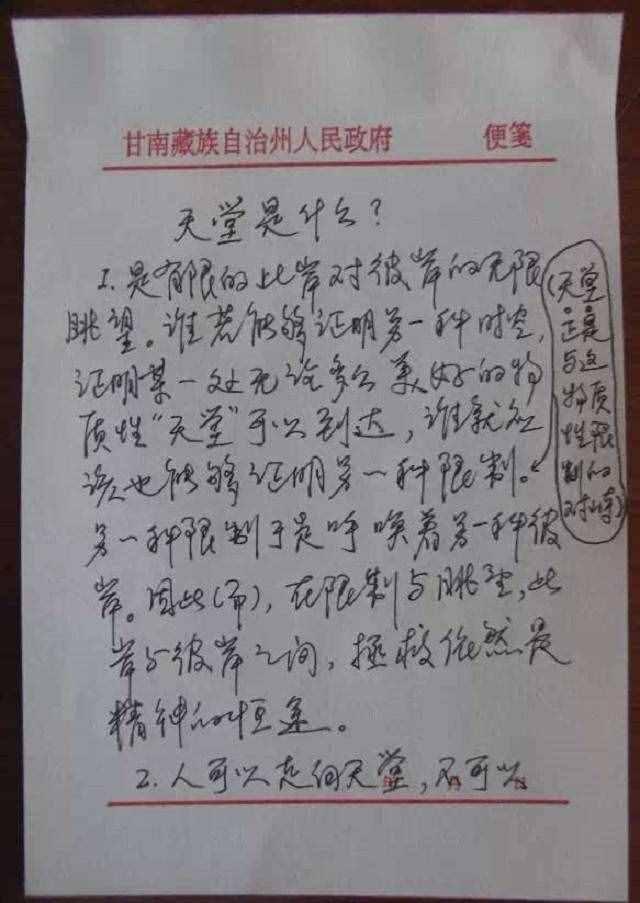 甘南藏族自治州人民政府 便笺
天堂是什么?
1.是有限的此岸对彼岸的无限
眺望。谁若能够证明另一种时空,
证明某一处无论多么美好的物
质性“天堂”可以到达,谁就应
该也能够证明另一种限制。
(天堂
正是
与这
物质
性限
制的
对峙)
另一种限制于是呼唤着另一种彼
岸。因此(而),在限制与眺望,此
岸与彼岸之间,拯救依然是
精神的恒途。
2.人可以走向天堂,不可以